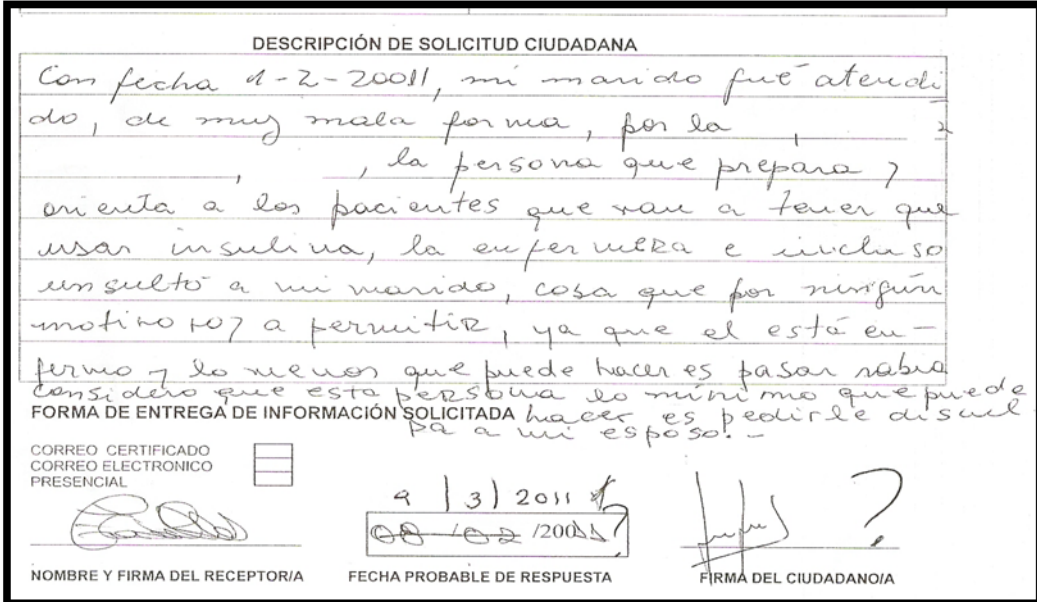 DESCRIPCIÓN DE SOLICITUD CIUDADANA
Con fecha 1-2-20011, mi marido fué atendi
do, de muy mala forma, por la ,
, , la persona que prepara y
orienta a los pacientes que van a tener que
usar insulina, la enfermera e incluso
insultó a mi marido, cosa que por ningún
motivo voy a permitir, ya que el está en-
fermo y lo menos que puede hacer es pasar rabia
considero que esta persona lo mínimo que puede
FORMA DE ENTREGA DE INFORMACIÓN SOLICITADA hacer es pedirle discul
pa a mi esposo.-
CORREO CERTIFICADO
CORREO ELECTRONICO
PRESENCIAL
9 / 3 / 2011
08 / 02 /20011 ?
?
NOMBRE Y FIRMA DEL RECEPTOR/A FECHA PROBABLE DE RESPUESTA FIRMA DEL CIUDADANO/A